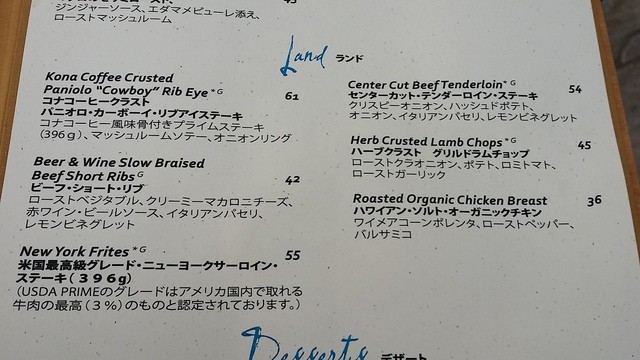 ジンジャーソース、エダマメピューレ添え、
ローストマッシュルーム
Land ランド
Kona Coffee Crusted
Paniolo "Cowboy" Rib Eye *G 61
コナコーヒークラスト
パニオロ・カーボーイ・リブアイステーキ
コナコーヒー風味骨付きプライムステーキ
(396g)、マッシュルームソテー、オニオンリング
Beer & Wine Slow Braised
Beef Short Ribs G 42
ビーフ・ショート・リブ
ローストベジタブル、クリーミーマカロニチーズ、
赤ワイン・ビールソース、イタリアンパセリ、
レモンビネグレット
New York Frites *G 55
米国最高級グレード・ニューヨークサーロイン・
ステーキ(396g)
(USDA PRIMEのグレードはアメリカ国内で取れる
牛肉の最高(3%)のものと認定されております。)
Center Cut Beef Tenderloin *G 54
センターカット・テンダーロイン・ステーキ
クリスピーオニオン、ハッシュドポテト、
オニオン、イタリアンパセリ、レモンビネグレット
Herb Crusted Lamb Chops *G 45
ハーブクラスト グリルドラムチョップ
ローストクラオニオン、ポテト、ロミトマト、
ローストガーリック
Roasted Organic Chicken Breast 36
ハワイアン・ソルト・オーガニックチキン
ワイメアコーンポレンタ、ローストペッパー、
バルサミコ
Desserts デザート